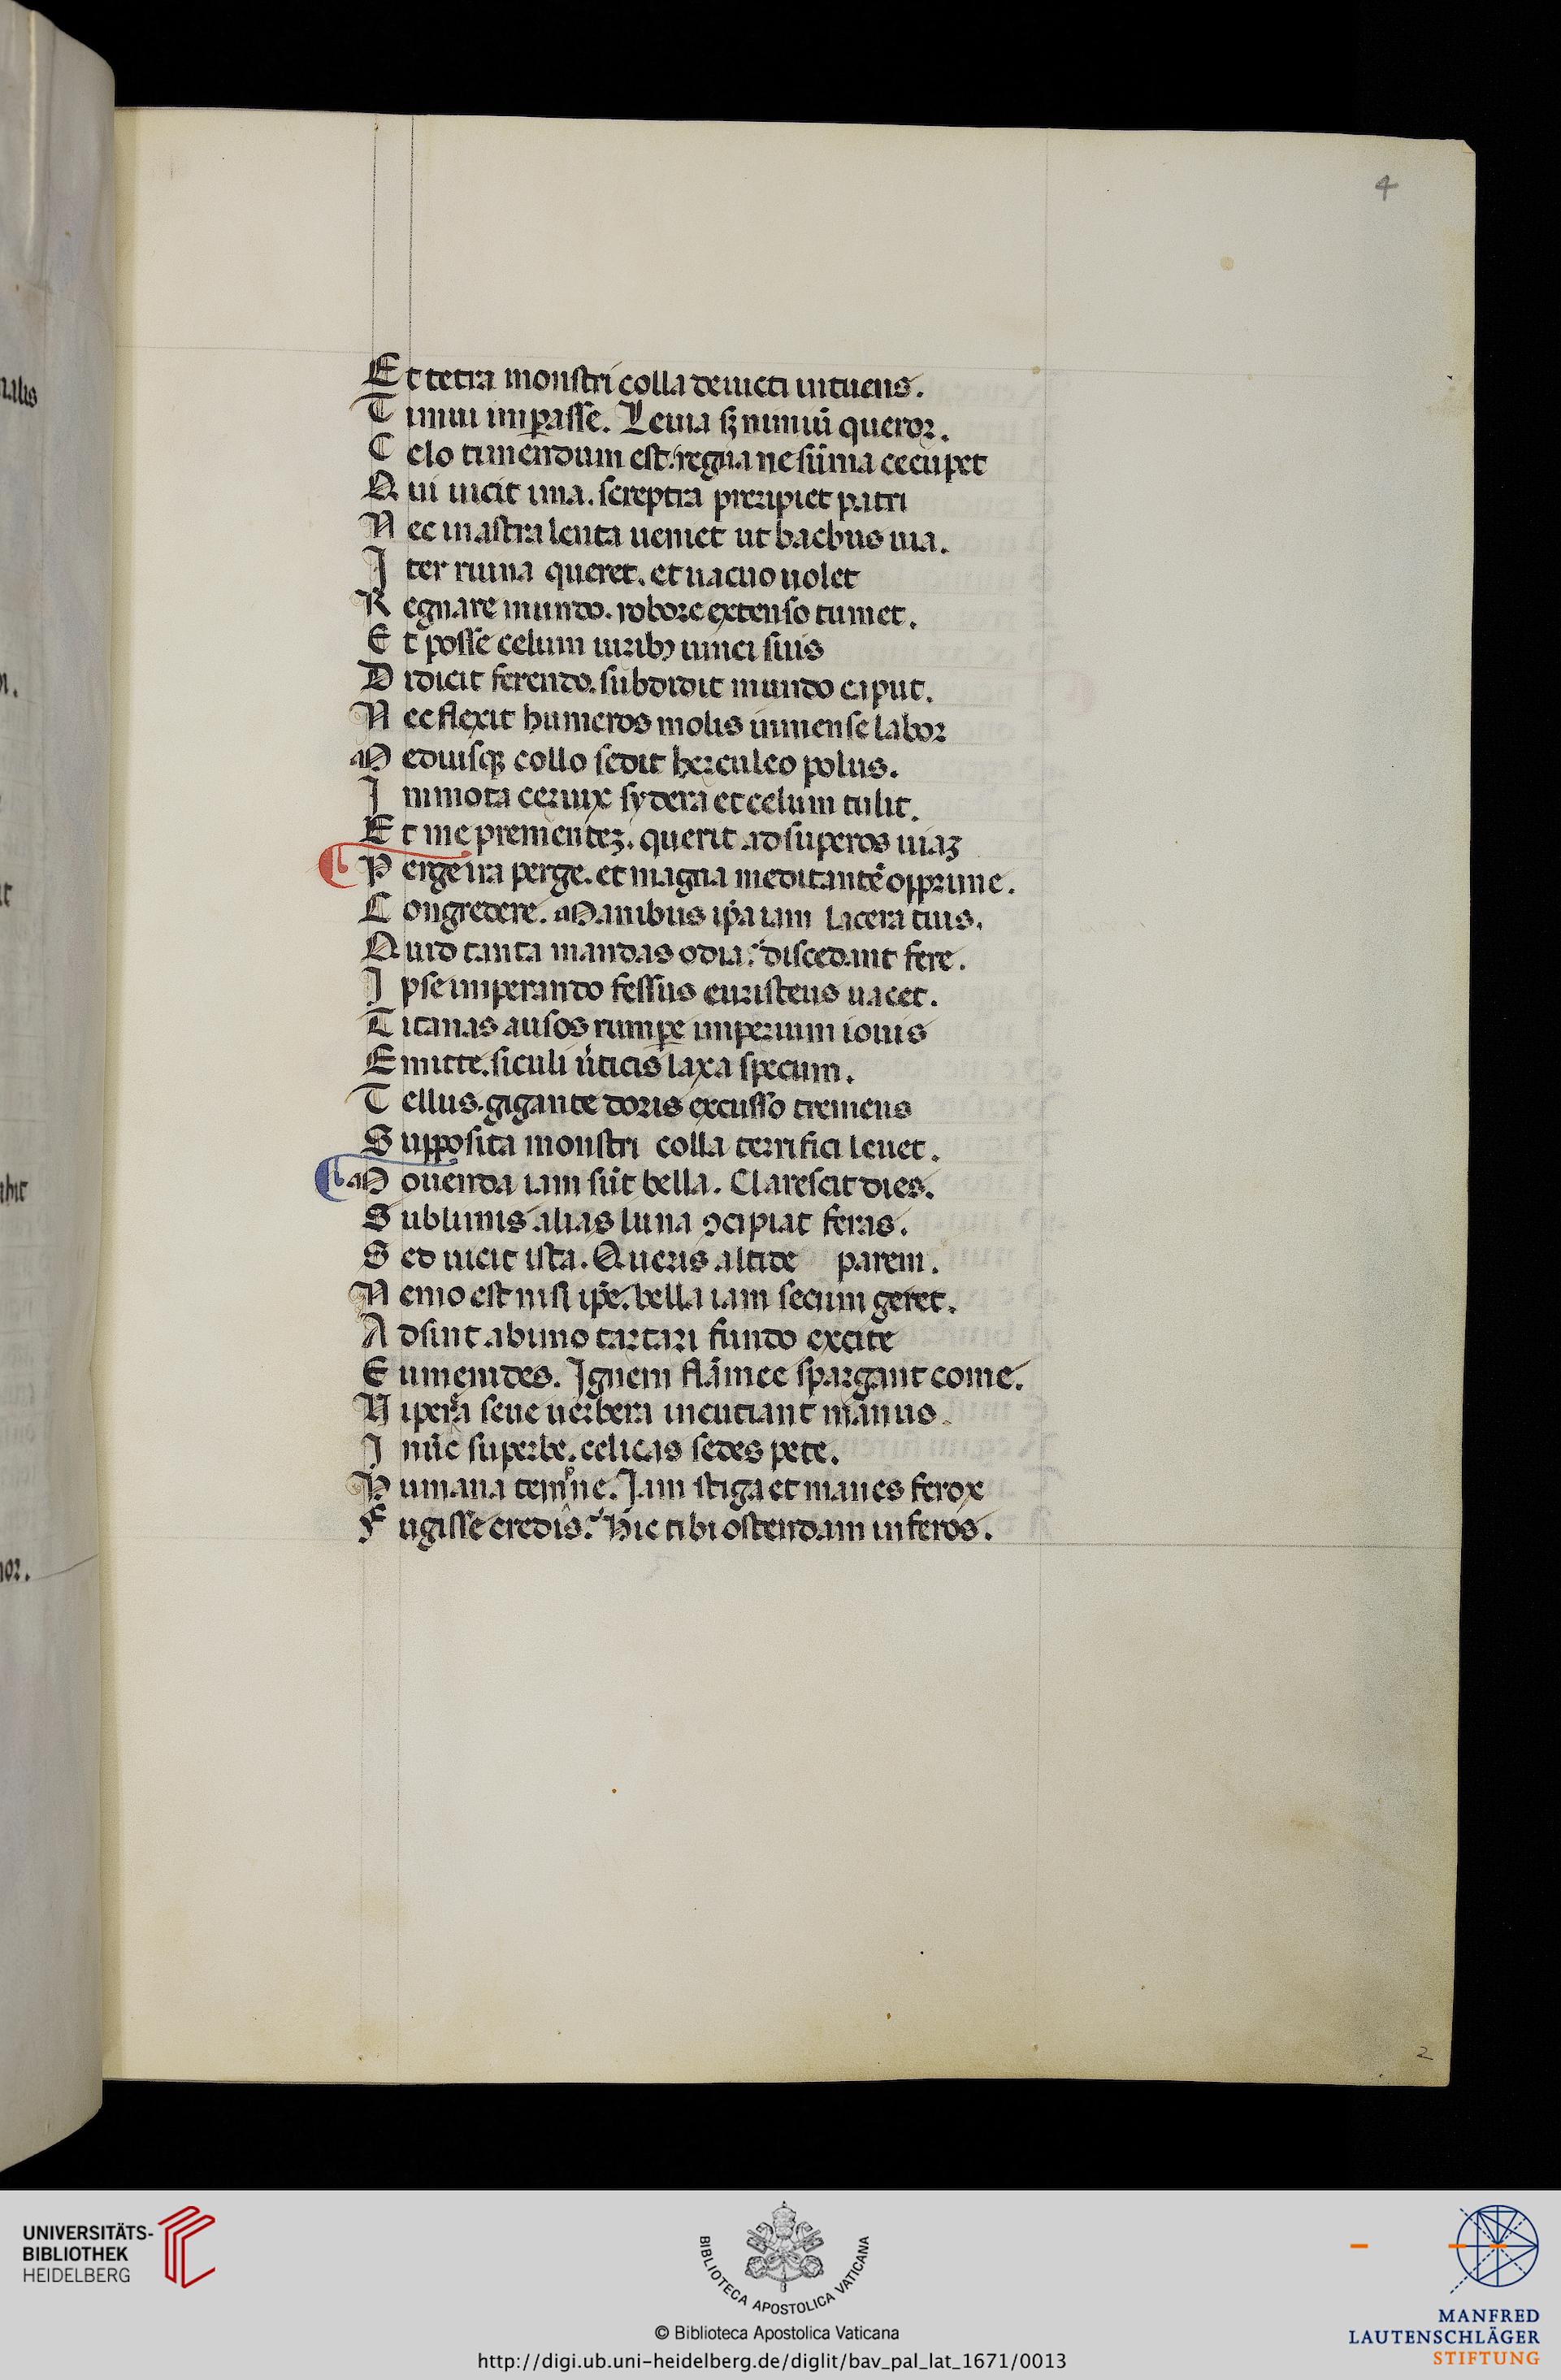 4
Et tetra monstri colla deuicti intuens.
Timui imꝑasse. Leuia sꝫ nimiū queror.
Celo timendum est. regna ne sūma occupet
Qui uicit ima. sceptra preripiet patri
Nec in astra lenta ueniet ut bachus uia.
Iter ruina queret. et uacuo uolet
Regnare mundo. robore extenso tumet.
Et posse celum uiribꝫ uinci suis
Didicit ferendo. subdidit mundo caput.
Nec flexit humeros molis immense labor
Mediusqꝫ collo sedit herculeo polus.
Immota ceruix sydera et celum tulit.
Et me prementeꝫ. querit ad superos uiaꝫ
Perge ira perge. et magna meditantē opprime.
Congredere. Manibus ip̄a iam lacera tuis.
Quid tanta mandas odia? discedant fere.
Ipse imperando fessus euristeus uacet.
Titanas ausos rumꝑe imperium iouis
Emitte. siculi ūticis laxa specum.
Tellus. gigante doris excusso tremens
Supposita monstri colla terrifici leuet.
Mouenda iam sūt bella. Clarescit dies.
Sublimis alias luna ꝯcipiat feras.
Sed uicit ista. Queris alcide parem.
Nemo est nisi ip̄e. bella iam secum geret.
Adsint ab imo tartari fundo excite
Eumenides. Ignem flāmee spargant come.
Viperea seue uerbera incutiant manus.
I nūc superbe. celicas sedes pete.
Humana temne. Iam stiga et manes ferox
Fugisse credis? Hic tibi ostendam inferos.
2
nalis
UNIVERSITÄTS-
BIBLIOTHEK
HEIDELBERG
BIBLIOTECA APOSTOLICA VATICANA
© Biblioteca Apostolica Vaticana
http://digi.ub.uni-heidelberg.de/diglit/bav_pal_lat_1671/0013
MANFRED
LAUTENSCHLÄGER
STIFTUNG